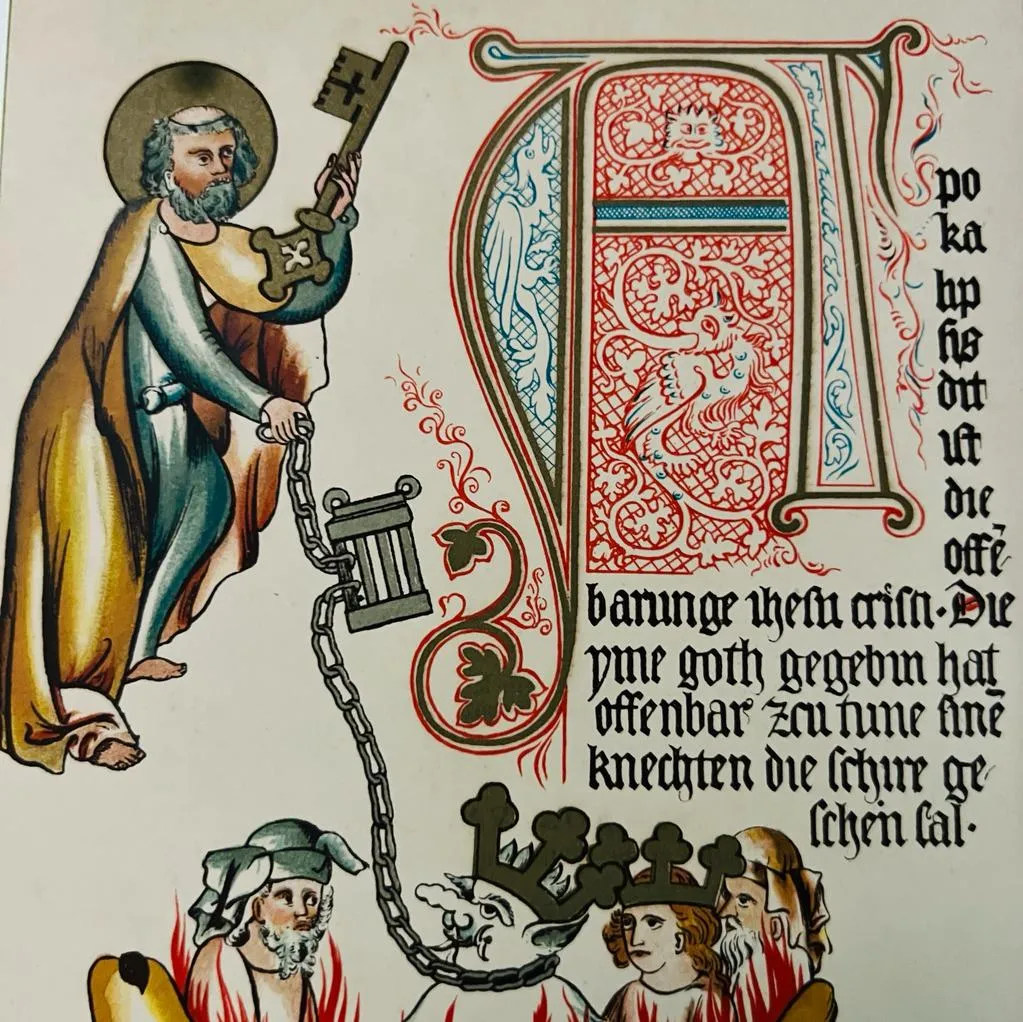 A
po
ka
lip
ſis
ditt
iſt
die
offē
barunge iheſu criſti · Die
yme goth gegebin hat
offenbar' zcu tune ſinē
knechten die ſchire ge
ſchein ſal ·